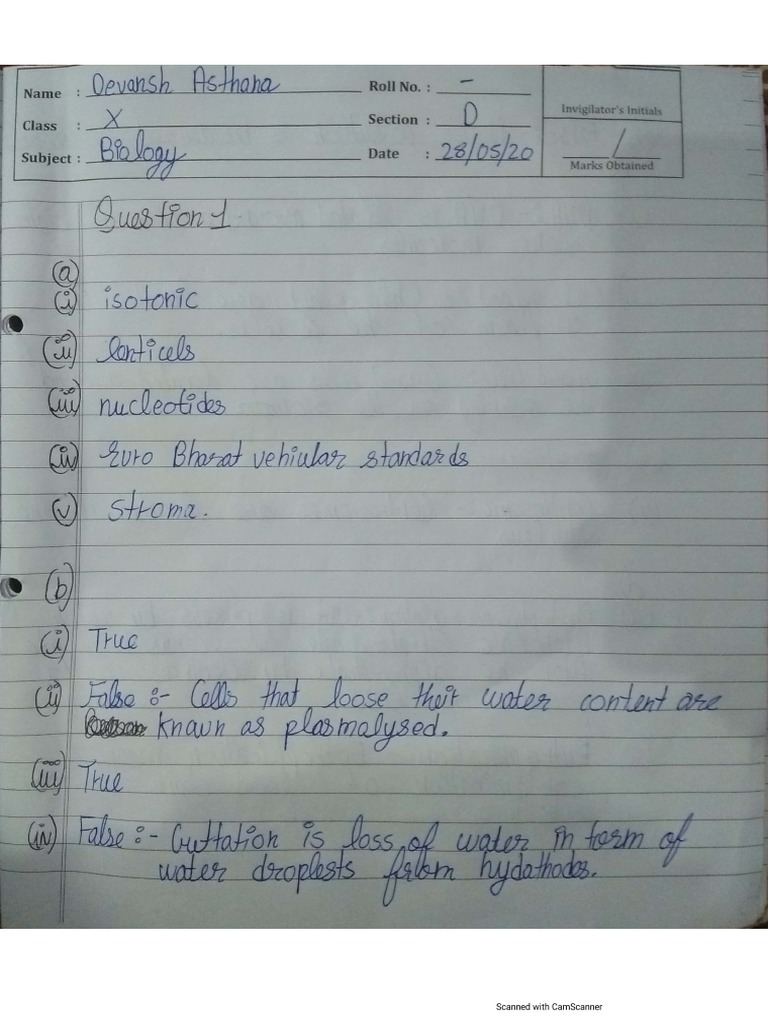 Name : Devansh Asthana Roll No. : -
Class : X Section : D Invigilator's Initials
Subject : Biology Date : 28/05/20 Marks Obtained
Question 1
(a)
(i) isotonic
(ii) lenticels
(iii) nucleotides
(iv) Euro Bharat vehiular standards
(v) stroma.
(b)
(i) True
(ii) False :- Cells that loose their water content are
known as plasmalysed.
(iii) True
(iv) False :- Guttation is loss of water in form of
water droplests from hydathodes.
Scanned with CamScanner